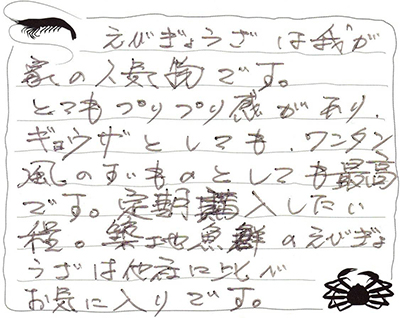 えびぎょうざは我が
家の人気物です。
とてもプリプリ感があり、
ギョウザとしても、ワンタン
風のすいものとしても最高
です。定期購入したい
程。築地魚群のえびぎょ
うざは他店に比べ
お気に入りです。